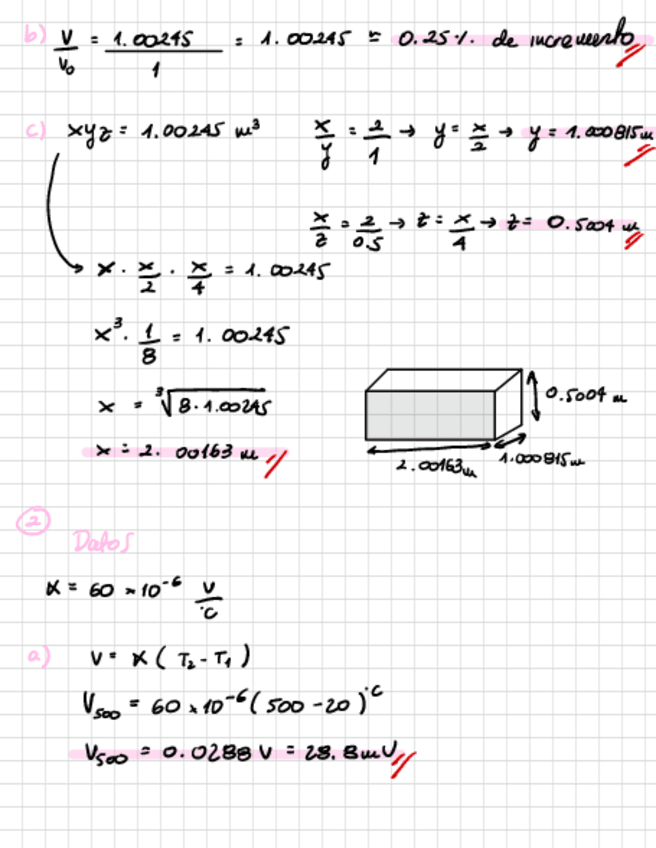 b) V/V₀ = 1.00245/1 = 1.00245 ≈ 0.25 % de incremento
c) xyz = 1.00245 m³
x/y = 2/1 → y = x/2 → y = 1.000815 m
x/z = 2/0.5 → z = x/4 → z = 0.5004 m
x · x/2 · x/4 = 1.00245
x³ · 1/8 = 1.00245
x = ³√8·1.00245
x = 2.00163 m
0.5004 m
2.00163m
1.000815m
2
Datos
α = 60 × 10⁻⁶ V/°C
a) V = α ( T₂ - T₁ )
V₅₀₀ = 60 × 10⁻⁶ ( 500 - 20 )°C
V₅₀₀ = 0.0288 V = 28.8 mV